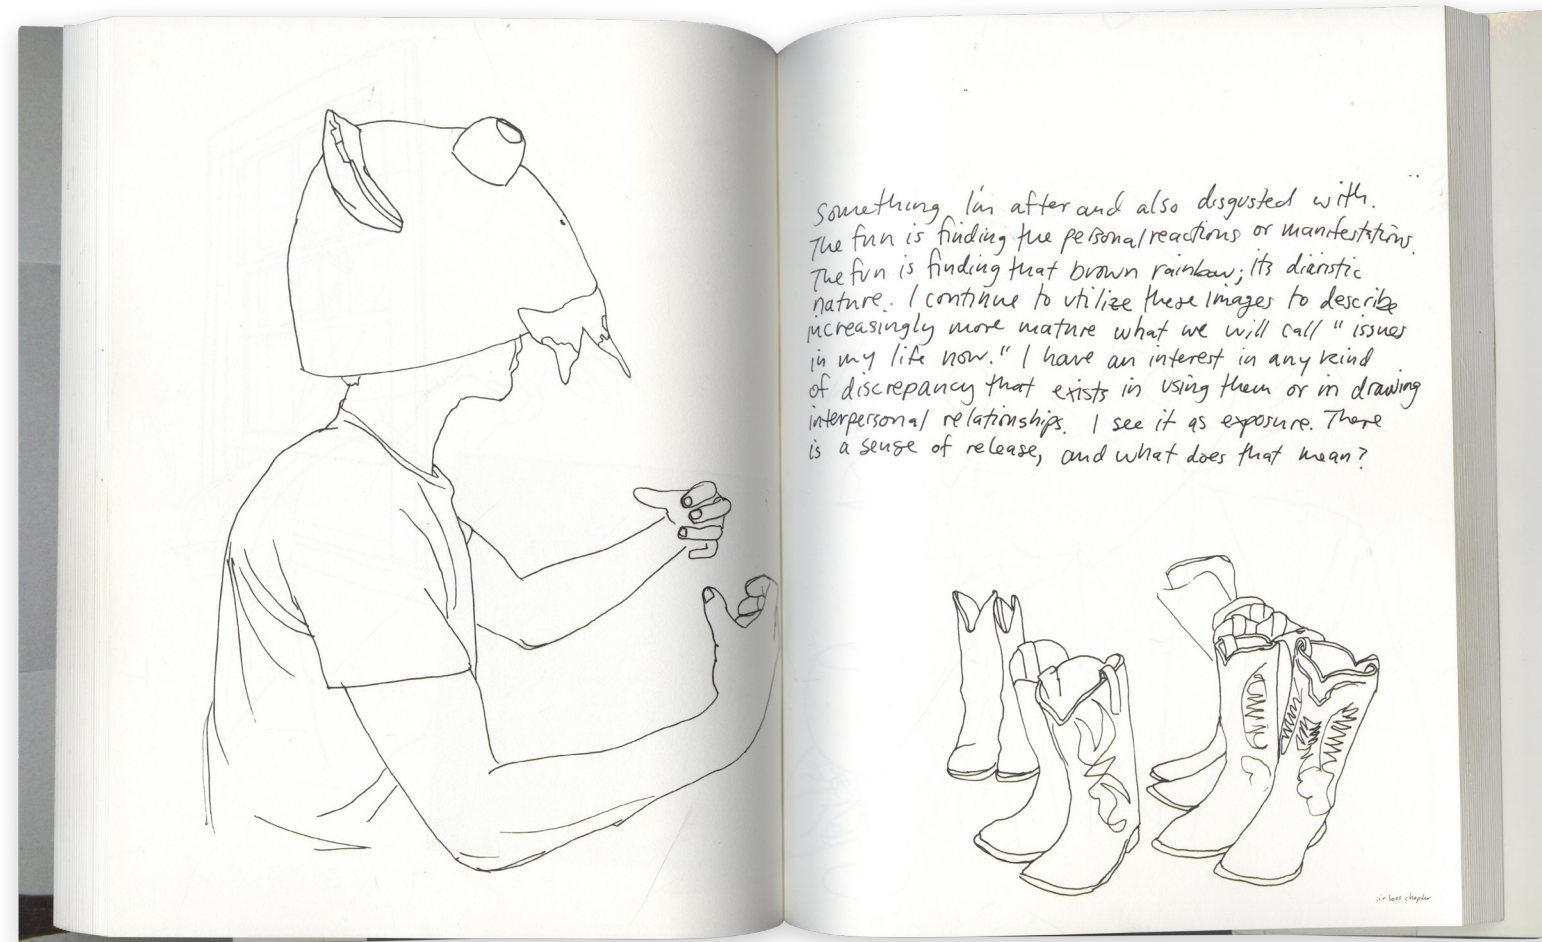 Something I'm after and also disgusted with.
The fun is finding the personal reactions or manifestations.
The fun is finding that brown rainbow; its diaristic
nature. I continue to utilize these images to describe
increasingly more mature what we will call "issues
in my life now." I have an interest in any kind
of discrepancy that exists in using them or in drawing
interpersonal relationships. I see it as exposure. There
is a sense of release, and what does that mean?
chapter